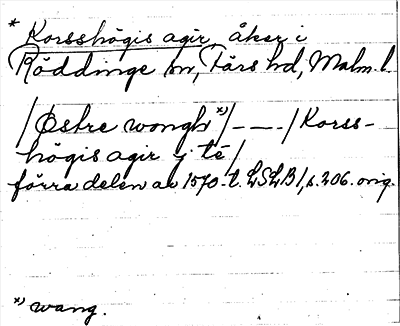 * Korsshögis agir, åker i
Röddinge sn, Färs hd, Malm. l.
/Østre wongh*)/ — — — / Korss-
högis agir j té/
förra delen av 1570-t. LSLB1, s. 206. orig.
*) wang.